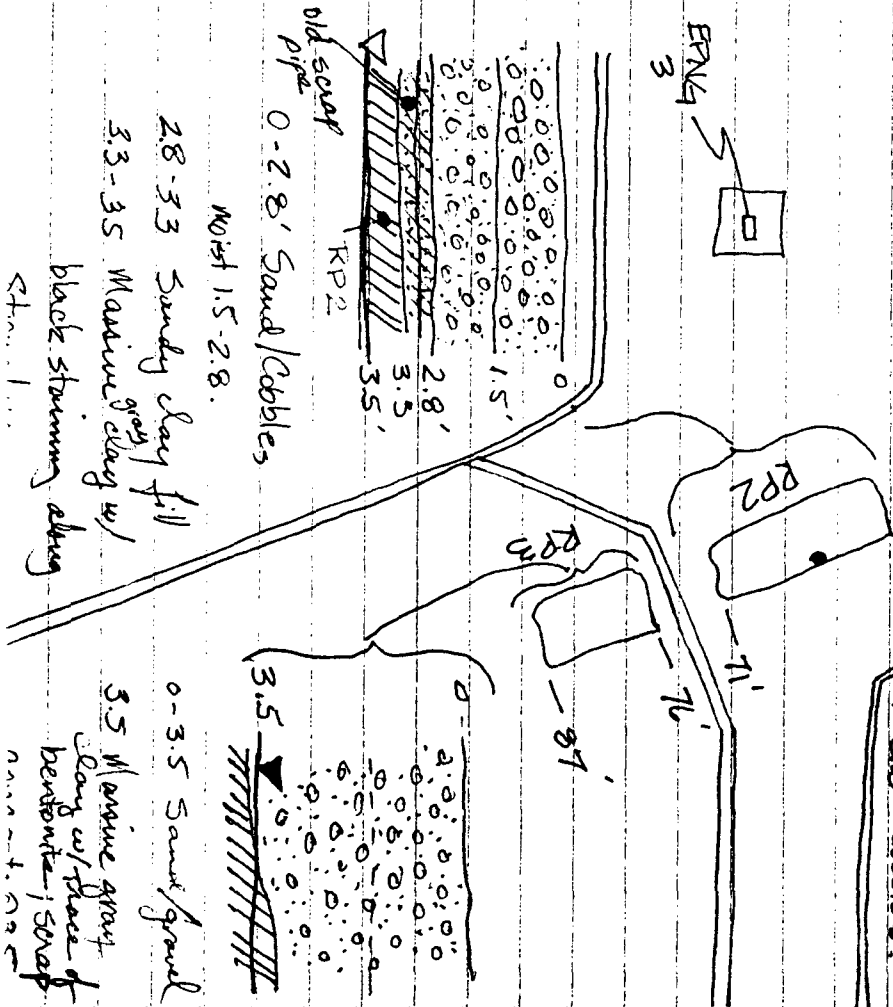 3
RP2
71'
76'
RP3
87'
0
1.5'
2.8'
3.3
3.5'
old scrap
pipe
RP2
0-2.8' Sand/Cobbles
Moist 1.5-2.8.
2.8-3.3 Sandy clay fill
3.3-3.5 Massive gray clay w/
black staining along
0
3.5
0-3.5 Sand/gravel
3.5 Massive gray
clay w/trace of
bentonite; scrap